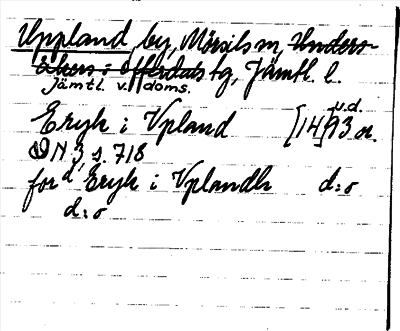 Uppland, by, Mörsils sn, Unders-
åkers o Offerdals tg, Jämtl. l.
Jämtl. v. doms.
Eryk i Vpland [14]93 u.d. or.
DN 3 s. 718
for d', Eryk i Vplandh d:o
d:o